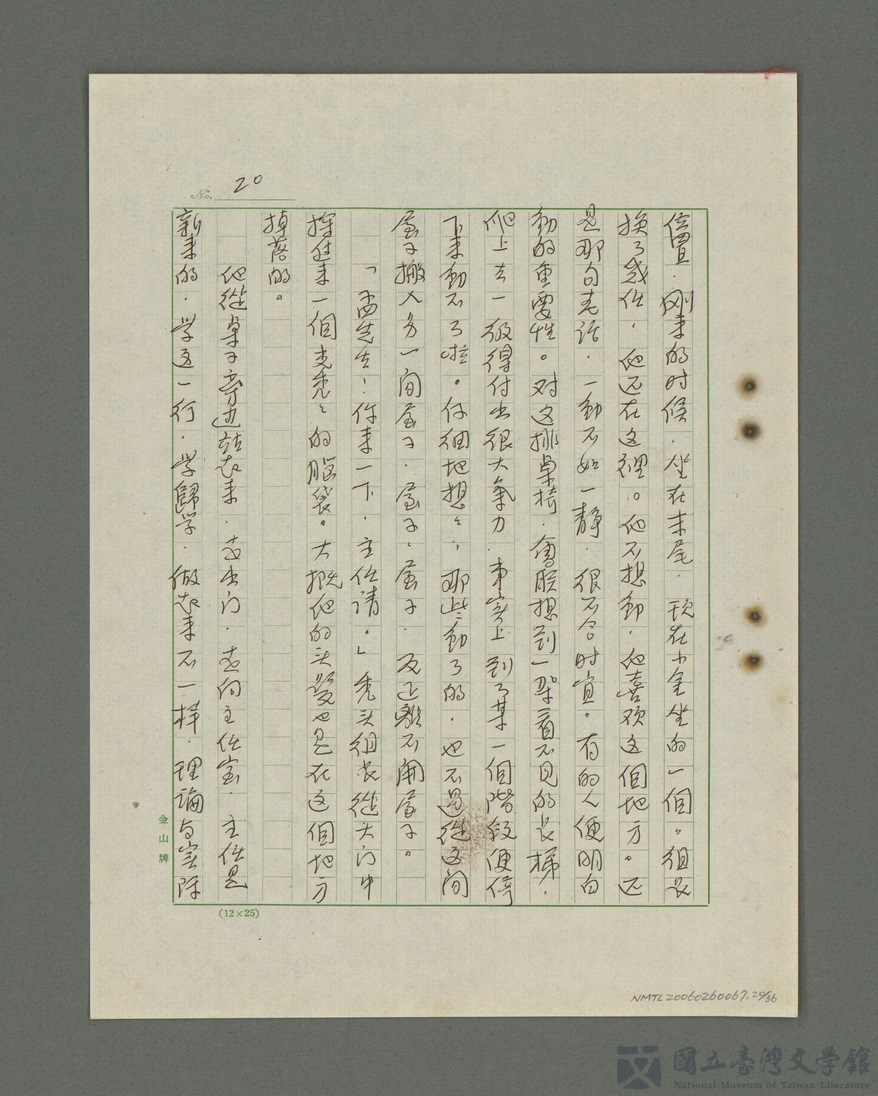 No. 20
位置，剛来的时候，坐在末尾，現在坐的一個。组長
換了幾任，他还在这裡。他不想動，他喜欢这個地方。还
是那句老话，一動不如一静，很不合时宜。有的人便明白
動的重要性。对这排桌椅，會联想到一架看不見的長梯，
爬上去一级得付出很大氣力，事实上到了某一個階级便停
下来動不了啦。仔细地想々，那些動了的，也不過從这间
屋子搬入另一间屋子，屋子、屋子，反正離不開屋子。
「孟先生！你来一下，主任請。」秃头组長從大门中
探进来一個光秃々的腦袋。大概他的头髮也是在这個地方
掉落的。
他從桌子旁边站起来，走出门，走向主任室，主任是
新来的，学这一行，学歸学，做起来不一样，理論与实际
金山牌
(12×25)
NMTL20060260067,20/36
國立臺灣文學館
National Museum of Taiwan Literature